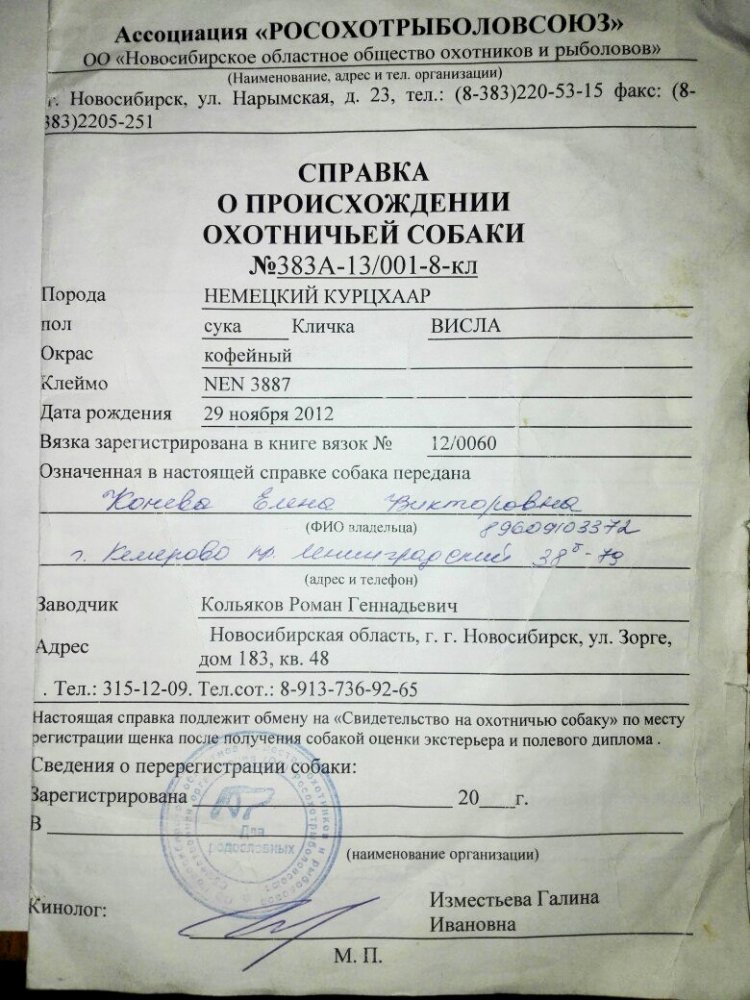 Ассоциация «РОСОХОТРЫБОЛОВСОЮЗ»
ОО «Новосибирское областное общество охотников и рыболовов»
(Наименование, адрес и тел. организации)
г. Новосибирск, ул. Нарымская, д. 23, тел.: (8-383)220-53-15 факс: (8-
383)2205-251
СПРАВКА
О ПРОИСХОЖДЕНИИ
ОХОТНИЧЬЕЙ СОБАКИ
№383А-13/001-8-кл
Порода НЕМЕЦКИЙ КУРЦХААР
пол сука Кличка ВИСЛА
Окрас кофейный
Клеймо NEN 3887
Дата рождения 29 ноября 2012
Вязка зарегистрирована в книге вязок № 12/0060
Означенная в настоящей справке собака передана
Конева Елена Викторовна
(ФИО владельца) 89609103372
г. Кемерово пр. Ленинградский 38б-79
(адрес и телефон)
Заводчик Кольяков Роман Геннадьевич
Адрес Новосибирская область, г. г. Новосибирск, ул. Зорге,
дом 183, кв. 48
. Тел.: 315-12-09. Тел.сот.: 8-913-736-92-65
Настоящая справка подлежит обмену на «Свидетельство на охотничью собаку» по месту
регистрации щенка после получения собакой оценки экстерьера и полевого диплома .
Сведения о перерегистрации собаки:
Зарегистрирована 20 г.
В
Для
родословных
(наименование организации)
Кинолог: Изместьева Галина
Ивановна
М. П.